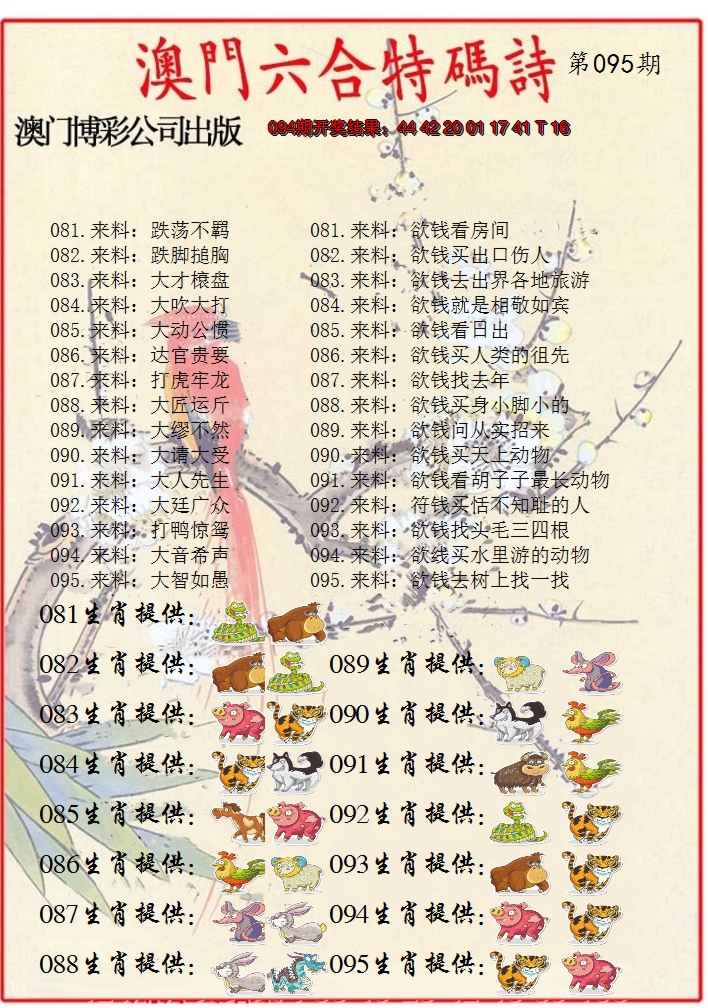 澳門六合特碼詩 第095期
澳门博彩公司出版 094期开奖结果：44 42 20 01 17 41 T 16
081.来料：跌荡不羁 081.来料：欲钱看房间
082.来料：跌脚搥胸 082.来料：欲钱买出口伤人
083.来料：大才榱盘 083.来料：欲钱去出界各地旅游
084.来料：大吹大打 084.来料：欲钱就是相敬如宾
085.来料：大动公惯 085.来料：欲钱看日出
086.来料：达官贵要 086.来料：欲钱买人类的祖先
087.来料：打虎牢龙 087.来料：欲钱找去年
088.来料：大匠运斤 088.来料：欲钱买身小脚小的
089.来料：大缪不然 089.来料：欲钱问从实招来
090.来料：大请大受 090.来料：欲钱买天上动物
091.来料：大人先生 091.来料：欲钱看胡子子最长动物
092.来料：大廷广众 092.来料：符钱买恬不知耻的人
093.来料：打鸭惊鸳 093.来料：欲钱找头毛三四根
094.来料：大音希声 094.来料：欲线买水里游的动物
095.来料：大智如愚 095.来料：欲钱去树上找一找
081生肖提供：
082生肖提供： 089生肖提供：
083生肖提供： 090生肖提供：
084生肖提供： 091生肖提供：
085生肖提供： 092生肖提供：
086生肖提供： 093生肖提供：
087生肖提供： 094生肖提供：
088生肖提供： 095生肖提供：